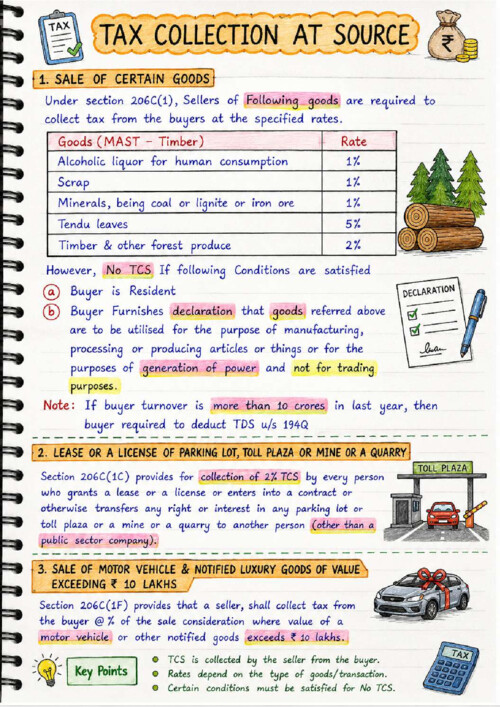 TAX
TAX COLLECTION AT SOURCE
₹
1. SALE OF CERTAIN GOODS
Under section 206C(1), Sellers of Following goods are required to
collect tax from the buyers at the specified rates.
Goods (MAST - Timber) Rate
Alcoholic liquor for human consumption 1%
Scrap 1%
Minerals, being coal or lignite or iron ore 1%
Tendu leaves 5%
Timber & other forest produce 2%
However, No TCS If following Conditions are satisfied
(a) Buyer is Resident
(b) Buyer Furnishes declaration that goods referred above
are to be utilised for the purpose of manufacturing,
processing or producing articles or things or for the
purposes of generation of power and not for trading
purposes.
DECLARATION
Note: If buyer turnover is more than 10 crores in last year, then
buyer required to deduct TDS u/s 194Q
2. LEASE OR A LICENSE OF PARKING LOT, TOLL PLAZA OR MINE OR A QUARRY
Section 206C(1C) provides for collection of 2% TCS by every person
who grants a lease or a license or enters into a contract or
otherwise transfers any right or interest in any parking lot or
toll plaza or a mine or a quarry to another person (other than a
public sector company).
TOLL PLAZA
3. SALE OF MOTOR VEHICLE & NOTIFIED LUXURY GOODS OF VALUE
EXCEEDING ₹ 10 LAKHS
Section 206C(1F) provides that a seller, shall collect tax from
the buyer @ % of the sale consideration where value of a
motor vehicle or other notified goods exceeds ₹ 10 lakhs.
Key Points
• TCS is collected by the seller from the buyer.
• Rates depend on the type of goods/transaction.
• Certain conditions must be satisfied for No TCS.
TAX